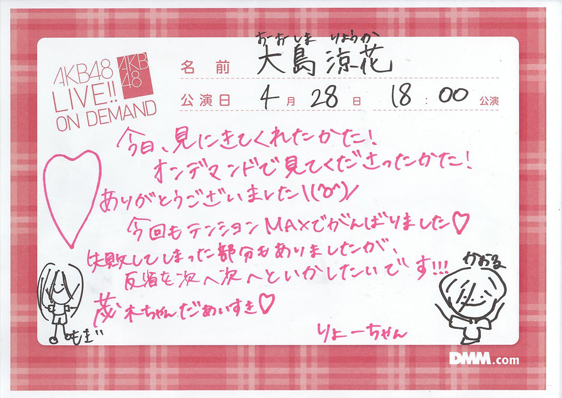 AKB48
LIVE!!
ON DEMAND
AKB
48
おーおしま りょうか
名前 大島 涼花
公演日 4月28日 18:00公演
今日、見にきてくれたかた!
オンデマンドで見てくださったかた!
ありがとうございました\(^o^)/
今回もテンションMAXでがんばりました♡
失敗してしまった部分もありましたが、
反省を次へ次へといかしたいです!!!
茂木ちゃんだぁいすき♡
りょーちゃん
もぎ
かおる
DMM.com